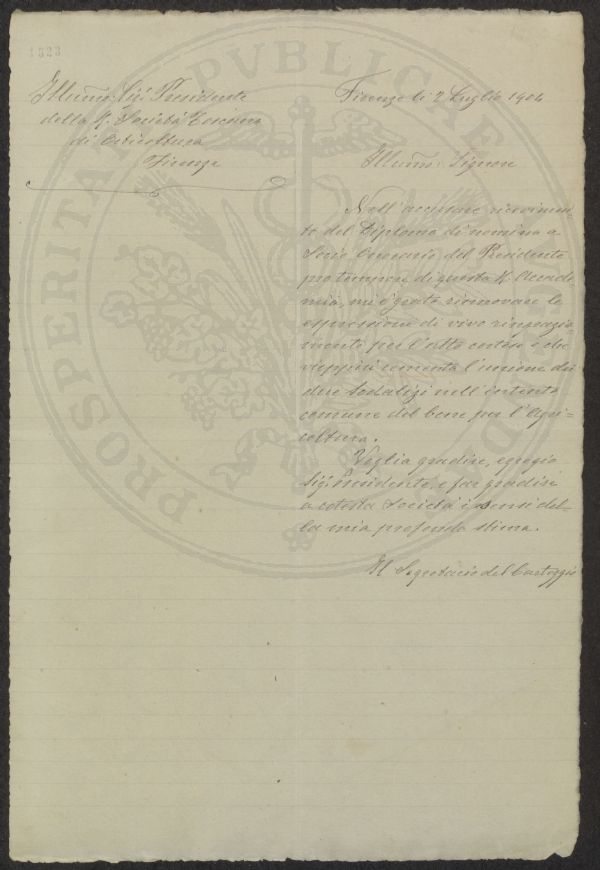 1323
Illmo: Sigr. Presidente
della R. Società Toscana
di Orticoltura
Firenze
Firenze li 2 Luglio 1904
Illmo: Signore
Nell'accusare ricevimen-
to del Diploma di nomina a
Socio Onorario del Presidente
pro tempore di questa R. Accade
mia, mi è grato rinnovare le
espressione di vivo ringrazia-
menti per l'atto cortese e che
vieppiù cementa l'unione dei
due Sodalizi nell'intento
comune del bene per l'Agri-
coltura.
Voglia gradire, egregio
Sigr. Presidente, e far gradire
a cotesta Società i sensi del-
la mia profonda stima.
Il Segretario del Carteggio
PROSPERITATI PVBLICAE